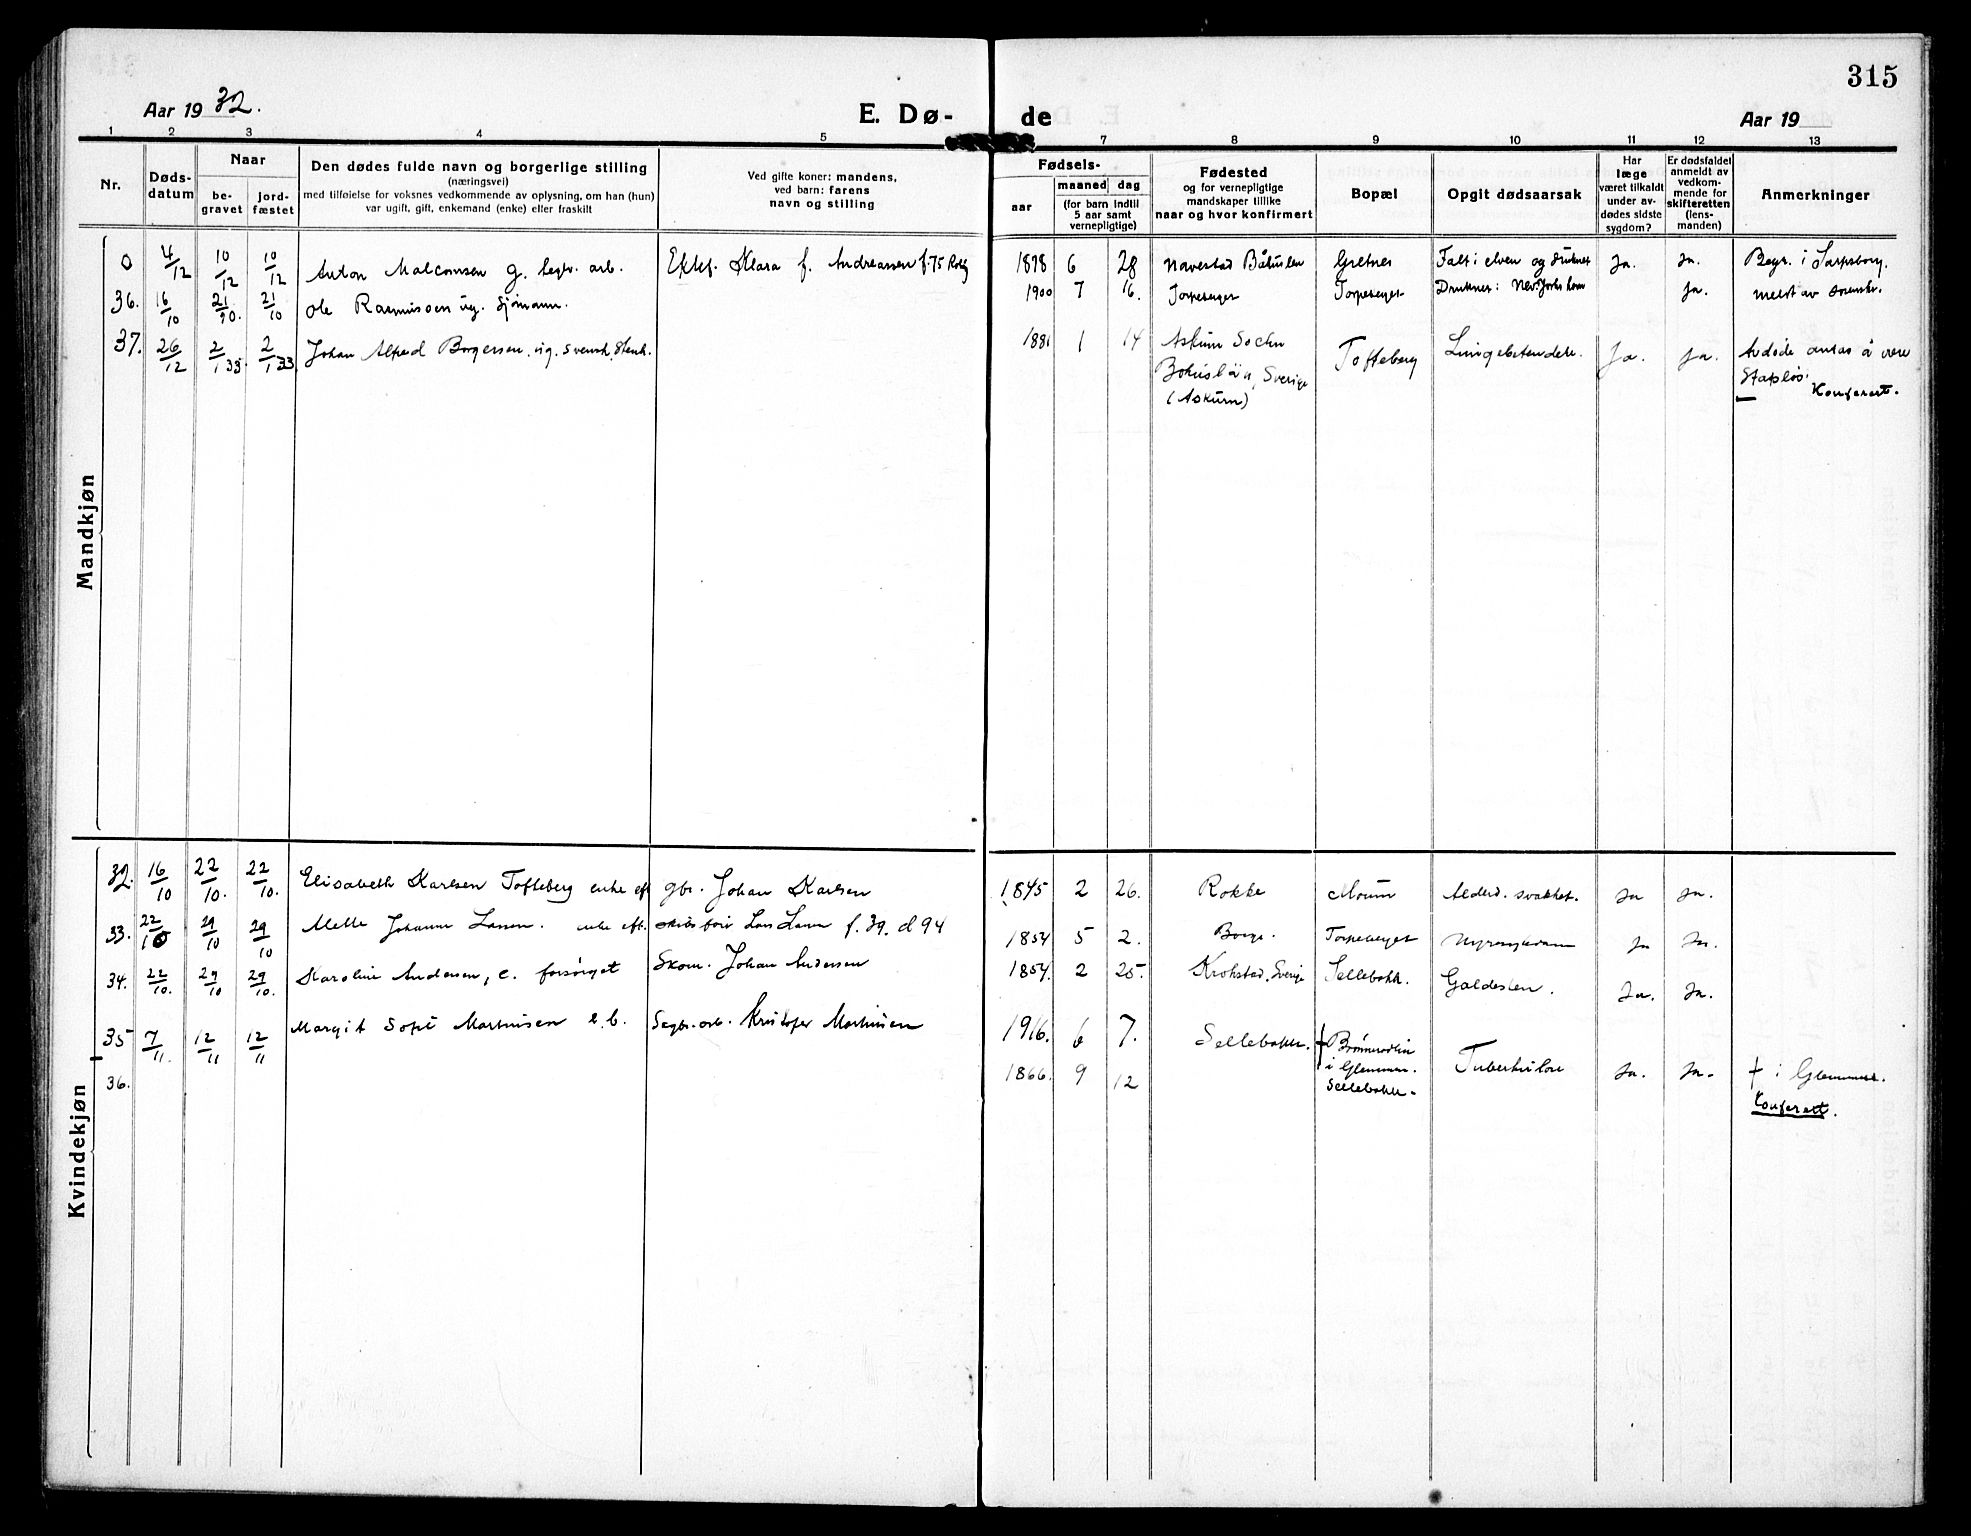 315
Aar 19 32.
E. Dø-
de
Aar 19
1 2 3 4 5 7 8 9 10 11 12 13
Nr.
Døds-
datum
Naar
be-
gravet
jord-
fæstet
Den dødes fulde navn og borgerlige stilling
(næringsvei)
med tilføielse for voksnes vedkommende av oplysning, om han (hun)
var ugift, gift, enkemand (enke) eller fraskilt
Ved gifte koner: mandens,
ved barn: farens
navn og stilling
Fødsels-
aar
maaned dag
(for barn indtil
5 aar samt
vernepligtige)
Fødested
og for vernepligtige
mandskaper tillike
naar og hvor konfirmert
Bopæl
Opgit dødsaarsak
Har
læge
været tilkaldt
under av-
dødes sidste
sygdom?
Er dødsfaldet
anmeldt av
vedkom-
mende for
skifteretten
(lens-
manden)
Anmerkninger
Mandkjøn
0 4/12 10/12 10/12 Anton Malcomsen g. arb. Klara f. Andreassen f. 75 1898 6 28 Navestad Gretnes Falt i elven og druknet Ja. Ja. Begr. i Sarpsborg.
36. 16/10 21/10 Ole Rasmussen ug. Sjømann. 1900 7 16. Torpeberget Torpeberget Druknet i New Jork havn Ja. meldt av
37. 26/12 2/1 33. 2/1 33. Johan Alfred Borgersen, ug. svensk, 1881 1 14 Askum Sochn Tofteberg Lungebetendelse. Ja. Ja. Avdøde antas å være
Bohuslän, Sverige
(Askum)
Statsløs.
Konferert.
Kvindekjøn
32. 16/10 22/10. 22/10. Elisabeth Karlsen Tofteberg enke eft gbr. Johan Karlsen 1845 2 26. Rokke Moum Alderd. svakhet. Ja Ja.
33. 22/10 29/10 29/10 Johanne Larsen. enke eft. f. 39. d 94 1854 5 2. Borge. Torpeberget Ja Ja.
34. 22/10. 29/10 29/10. Karoline Andersen, e. forsørget Skom. Johan Andersen 1854. 2 25. Krokstad. Sverige Sellebakk. Galdesten. Ja. Ja.
35 7/11. 12/11 12/11 Margit Sofie Martinsen e.b. Sagbr.arb. Kristofer Martinsen 1916. 6 7. Sellebakk.
i Glemmen.
36. 1866. 9 12 Sellebakk. Tuberkulose Ja. Ja. † i Glemmen.
Konferert.